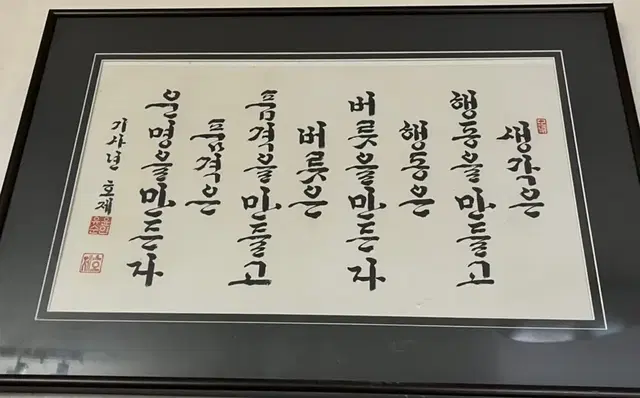 생각은
행동을만들고
행동은
버릇을만든자
버릇은
품격을만들고
품격은
운명을만든자
기사년 호제